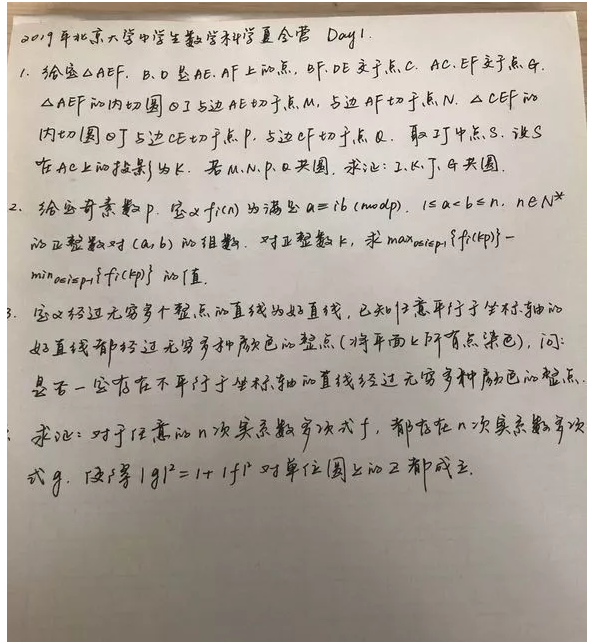 2019年北京大学中学生数学科学夏令营 Day1.
1. 给定△AEF. B.D是AE.AF上的点, BF.DE交于点C. AC.EF交于点G.
△AEF的内切圆⊙I与边AE切于点M, 与边AF切于点N. △CEF的
内切圆⊙J与边CE切于点P, 与边CF切于点Q. 取IJ中点S. 设S
在AC上的投影为K. 若M.N.P.Q共圆. 求证: I.K.J.G共圆.
2. 给定奇素数p. 定义fi(n)为满足a≡ib(modp). 1≤a<b≤n. n∈N*
的正整数对(a,b)的组数. 对正整数k, 求max0≤i≤p-1{fi(kp)}-
min0≤i≤p-1{fi(kp)}的值.
3. 定义经过无穷多个整点的直线为好直线, 已知任意平行于坐标轴的
好直线都经过无穷多种颜色的整点(将平面上所有点染色), 问:
是否一定存在不平行于坐标轴的直线经过无穷多种颜色的整点.
求证: 对于任意的n次实系数多项式f, 都存在n次实系数多项
式g. 使得|g|²=1+|f|²对单位圆上的z都成立.